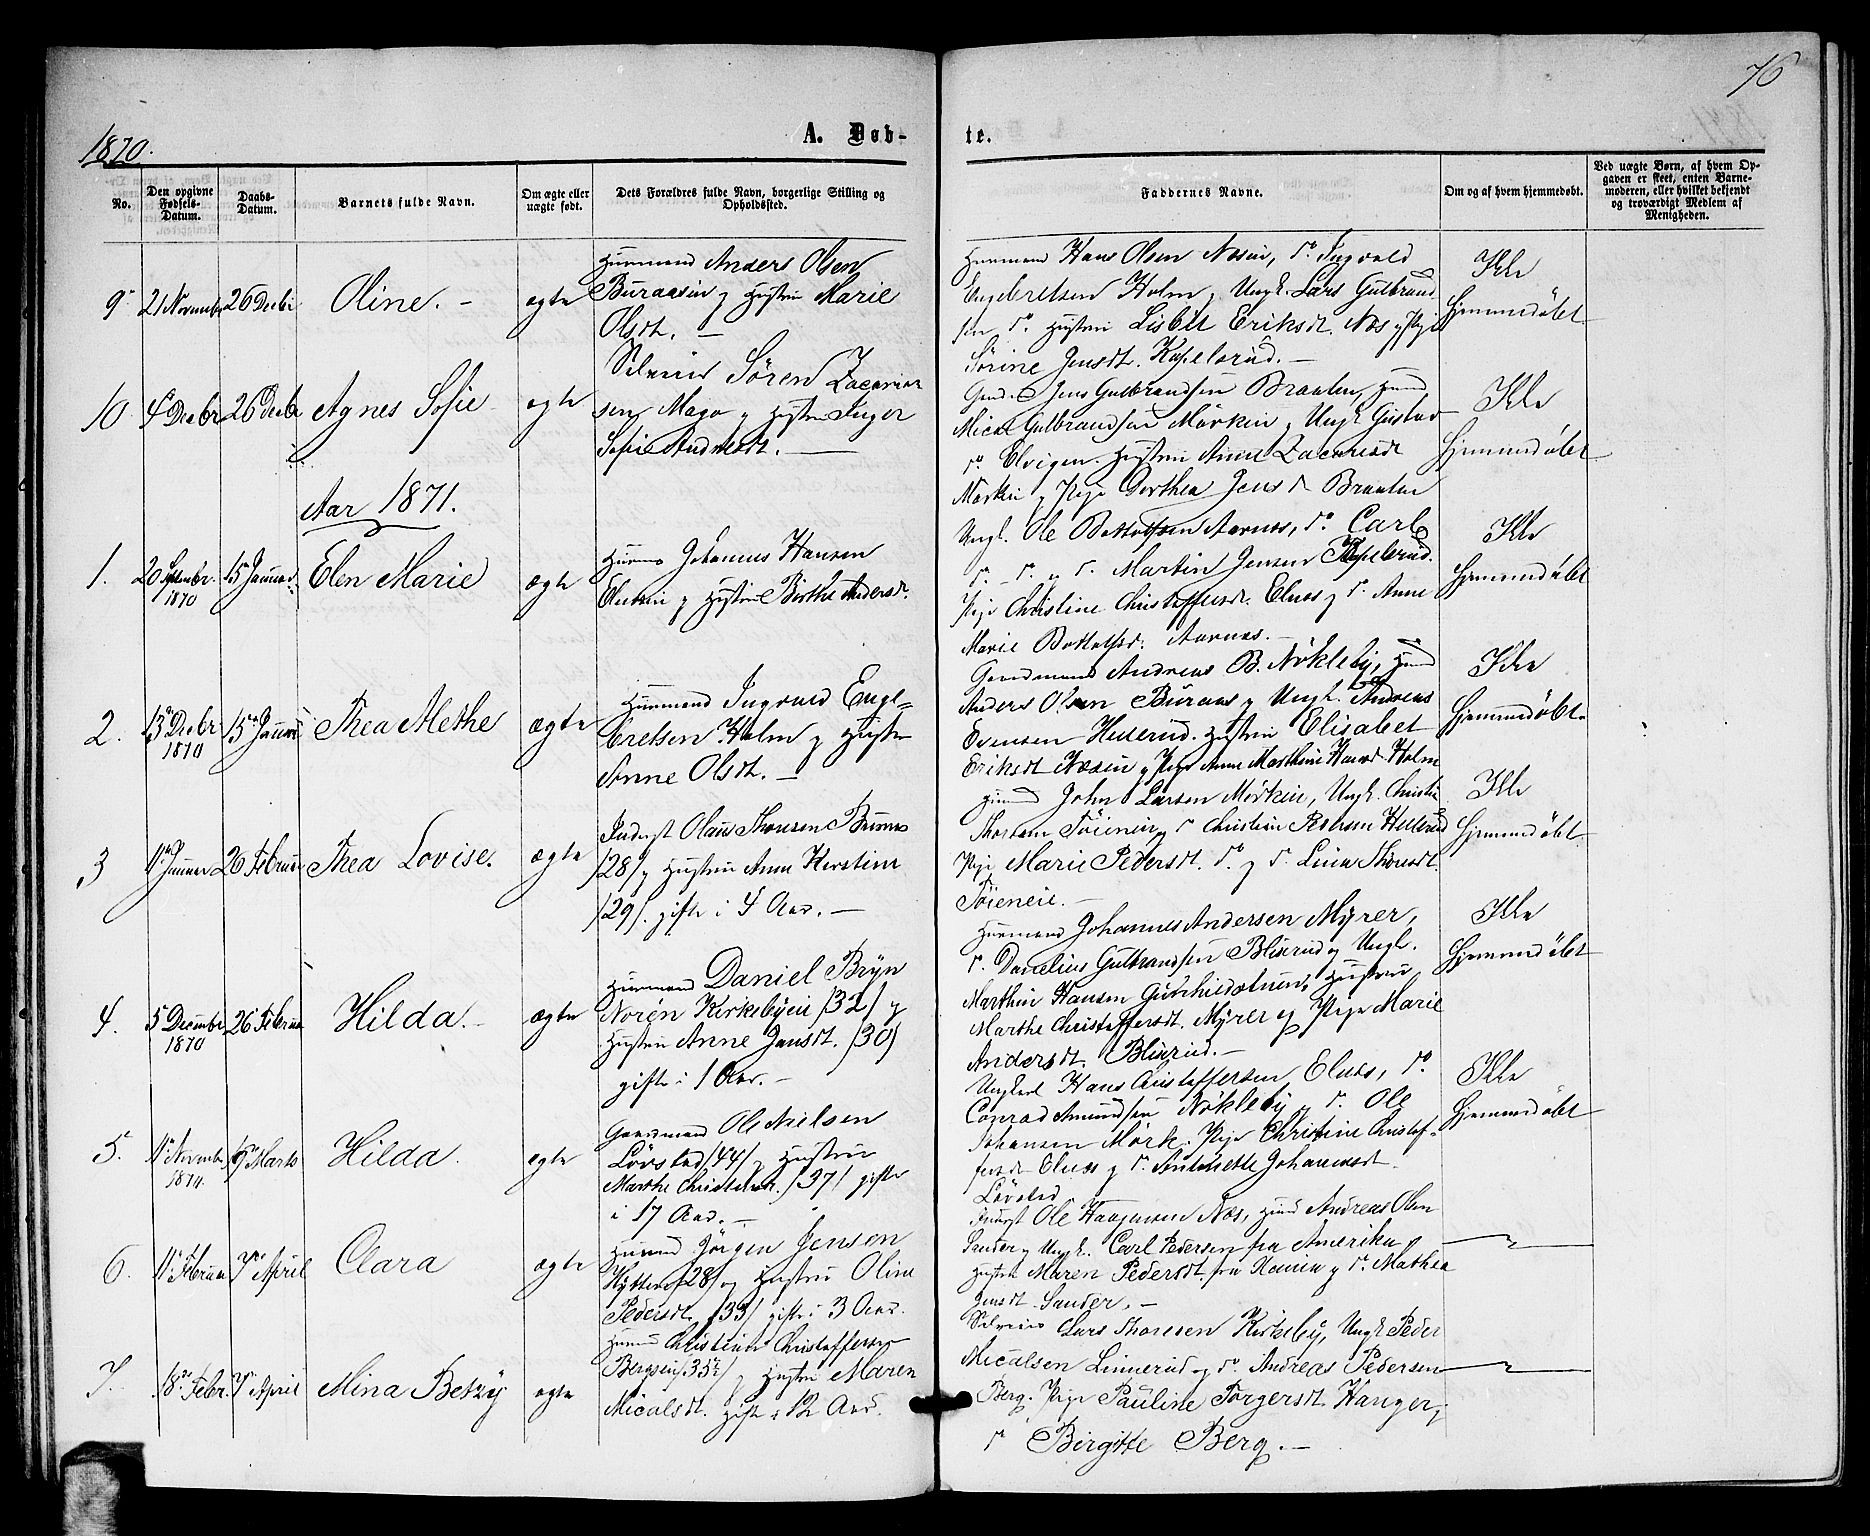 76
1870.
A. Døb-
te.
No.
Den opgivne Fødsels-Datum.
Daabs-Datum.
Barnets fulde Navn.
Om ægte eller uægte født.
Dets Forældres fulde Navn, borgerlige Stilling og Opholdssted.
Faddernes Navne.
Om og af hvem hjemmedøbt.
Ved uægte Børn, af hvem Opgaven er skeet, enten Barnemoderen, eller hvilket bekjendt og troværdigt Medlem af Menigheden.
9
21 Novembr
26 Decbr
Oline. -
ægte
Huusmand Anders Olsen
Buraasein og Hustru Marie
Olsdt. -
Huusmand Hans Olsen Næsein, do Ingvald
Engebretsen Holm og Ungk. Lars Gulbrand
sen do Hustru Lisbet Eriksdt. Næs og Pige
Sörine Jensdt. Kapelsrud. -
Ikke
Hjemmedöbt
10
4 Decbr
26 Decbr
Agnes Sofie
ægte
Sören Zacarias
sen Mago og Hustru Inger
Sofie Andersdt. -
Gmd. Jens Gulbrandsen Braaten, Huusmd
Micael Gulbrandsen Mörkein, Ungk Gustav
do Elvigen. Hustru Anne Zacarisdt
Mörkein og Pige Dorthea Jensdt. Braaten
Ikke
Hjemmedöbt
Aar 1871.
1.
20 Septembr. 1870
15 Januar
Elen Marie
ægte
Huusmd Johannes Hansen
og Hustru Birthe Andersdt.
Ungk. Ole Bottolfsen Aarnæs, do Carl
do og do Martin Jensen Kapelsrud.
Pige Christine Christoffersdt. Elnæs og do Anne
Marie Bottolfsdt. Aarnæs. -
Ikke
Hjemmedöbt
2.
13 Decbr 1870
15 Januar
Thea Methe
ægte
Huusmand Ingvald Enge-
bretsen Holm og Hustru
Anne Olsdt. -
Gaardmand Andreas B. Nökleby, Huusmd
Anders Olsen Buraas og Ungk. Andreas
Evensen Hellerud. Hustru Elisabet
Eriksdt Næsein og Pige Anne Marthine Hansdt Holm
Ikke
Hjemmedöbt.
3
1 Januar
26 Februar
Thea Lovise.
ægte
Inderst Olaus Thoresen
/28/ og Hustru Anne Kirstine
/29/. gifte i 4 Aar. -
Huusmd John Larsen Mörkein, Ungk. Christian
Thoresen Töienein og do Christian Pedersen Hellerud
Pige Marie Pedersdt. do og do Lina Thoresdt.
Töieneie. -
Ikke
Hjemmedöbt
4.
5 Decembr 1870
26 Februar
Hilda. -
ægte
Huusmand Daniel Bryn
Norén Kirkebyein /32/ og
Hustru Anne Jansdt. /30/
gifte i 1 Aar. -
Huusmand Johannes Andersen Myrer,
do. Danielius Gulbrandsen Blixrud og Ungk.
Marthin Hansen. Hustru
Marthe Christoffersdt. Myrer og Pige Marie
Andersdt. Blixrud. -
Ikke
Hjemmedöbt
5.
1 Novembr
Marts
Hilda.
ægte
Gaardmand Ole Nielsen
Lövstad /44/ og Hustru
Marthe /37/ gifte
i 17 Aar. -
Ungkarl Hans Christoffersen Elnæs, do
Conrad Amundsen Nökleby og do. Ole
Johansen Mörk. Pige Christine Christof-
fersdt Elnæs og do. Antonette Johannesdt.
Lövstad
Ikke
Hjemmedöbt
6.
11 Februar
7 April
Clara
ægte
Huusmd Jörgen Jensen
Hytten /28/ og Hustru Oline
Pedersdt. /33/ gifte i 3 Aar.
Inderst Ole Haagensen Næs, Huusmd Andreas Olsen
Sander og Ungk. Carl Pedersen fra Amerika,
Hustru Maren Pedersdt. fra og do. Mathea
Jensdt. Sander. -
7.
18 Febr.
7 April
Mina Betzy
ægte
Huusmd Christian Christoffersen
Bergsein /35½/ og Hustru Maren
Micalsdt. gift i 12 Aar.
Lars Thoresen Kirkeby, Ungk Peder
Micalsen Linnerud og do. Andreas Pedersen
Berg. Pige Pauline Torgersdt. Hanger,
do Birgitte Berg. -